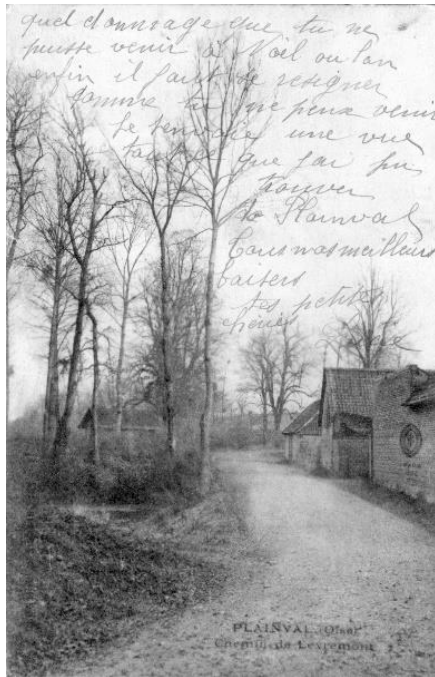 quel dommage que tu ne
puisse venir à Noël ou l'an
enfin il faut se resigner
comme tu ne peux venir
Je t'envoie une vue
que j'ai pu
trouver
de Plainval
Tous nos meilleurs
baisers
tes petites
cheries
PLAINVAL (Oise)
Chemin de Levremont